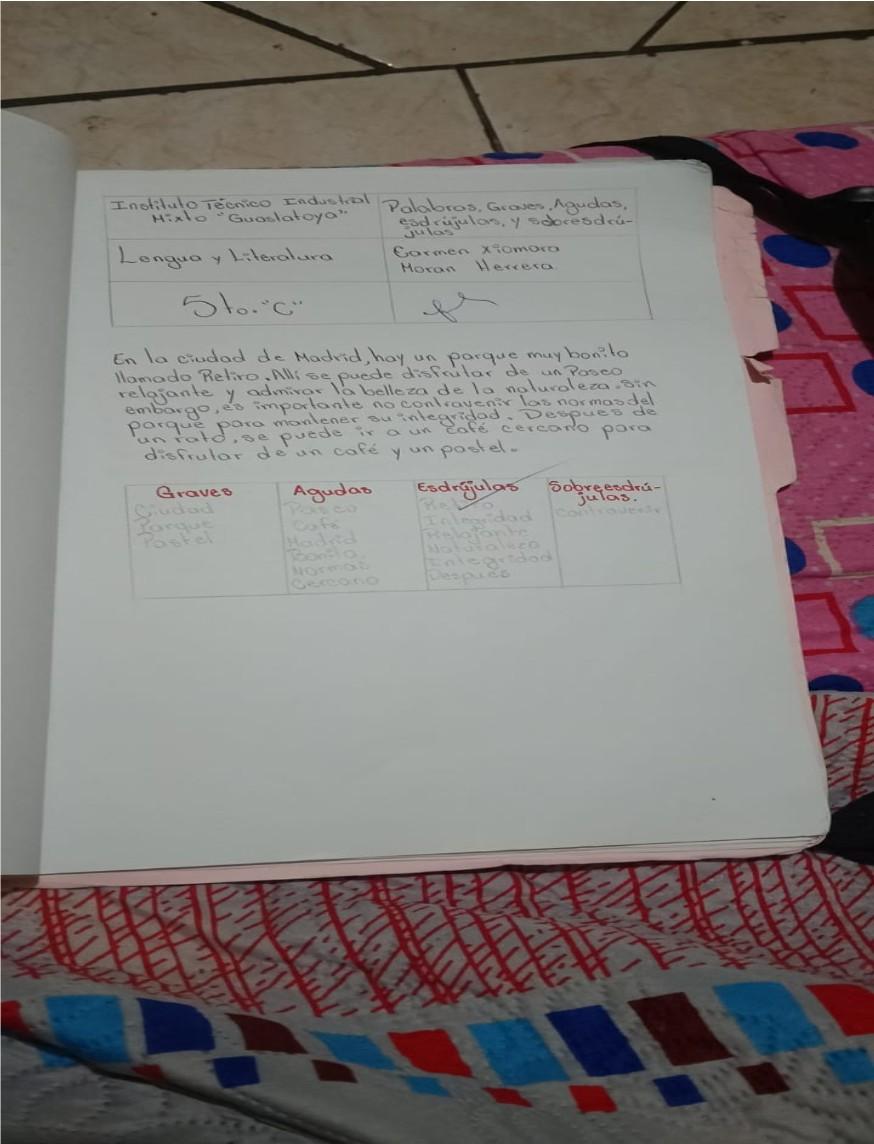 Instituto Técnico Industrial
Mixto "Guaslatoya"
Palabras, Graves, Agudas,
esdrújulas, y sobresdrú-
julas
Lengua y Literatura
Carmen Xiomara
Moran Herrera
5to. "C"
En la ciudad de Madrid, hay un parque muy bonito
llamado Retiro. Allí se puede disfrutar de un Paseo
relajante y admirar la belleza de la naturaleza. Sin
embargo, es importante no contravenir las normas del
parque para mantener su integridad. Despues de
un rato, se puede ir a un café cercano para
disfrutar de un café y un pastel.
Graves
Ciudad
Parque
Pastel
Agudas
Paseo
Café
Madrid
Bonito
Normas
Cercano
Esdrújulas
Retiro
Integridad
Relajante
Naturaleza
Integridad
Despues
Sobreesdrú-
julas.
Contravenir